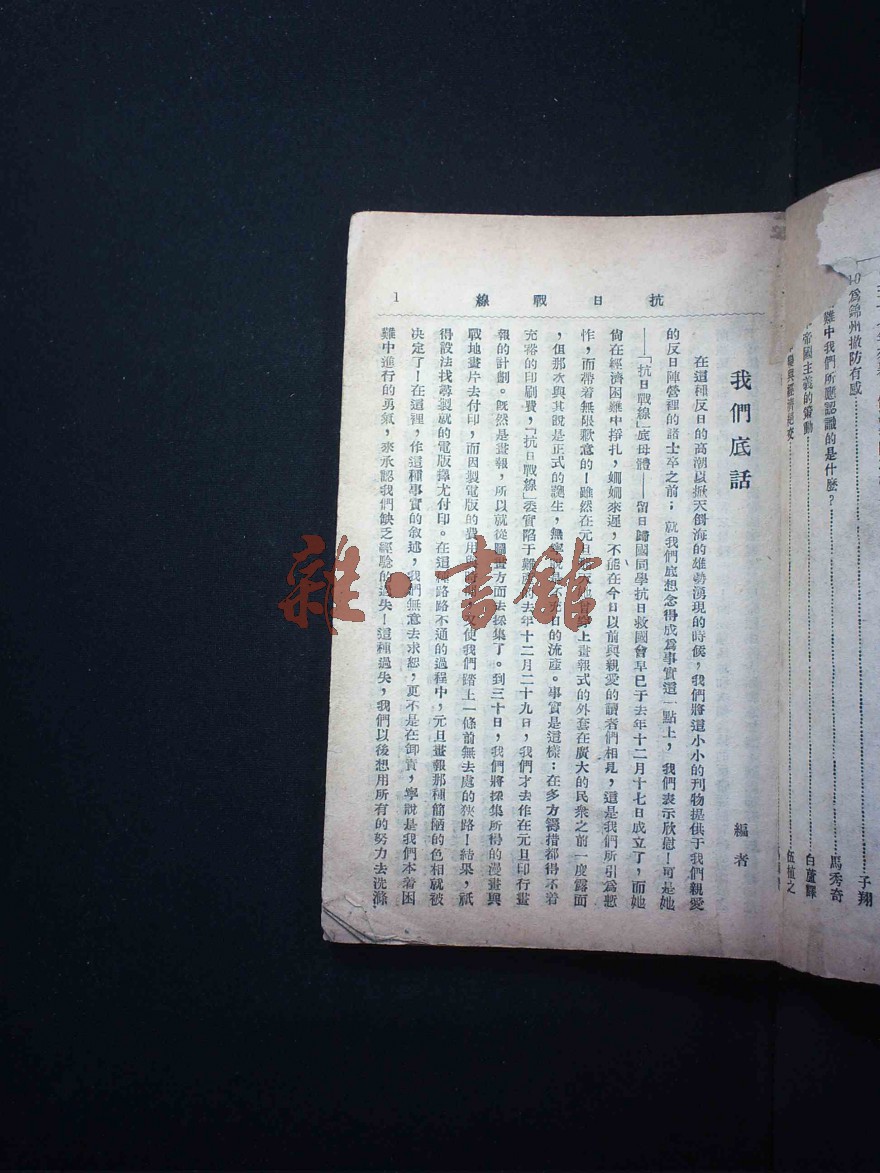 抗日戰線
1
我們底話
編者
在這種反日的高潮以掀天倒海的雄勢湧現的時候，我們將這小小的刊物提供于我們親愛
的反日陣營裡的諸士卒之前；就我們底想念得成爲事實這一點上，我們表示欣慰！可是她
——「抗日戰線」底母體——留日歸國同學抗日救國會早已于去年十二月十七日成立了，而她
倘在經濟困難中掙扎，姍姍來遲，不能在今日以前與親愛的讀者們相見，這是我們所引爲慙
怍，而帶着無限歉意的！雖然在元旦 上畫報式的外套在廣大的民衆之前一度露面
，但那次與其說是正式的誕生，無 的流產。事實是這樣：在多方籌措都得不着
充裕的印刷費，「抗日戰線」委實陷于難 去年十二月二十九日，我們才去作在元旦印行畫
報的計劃。既然是畫報，所以就從圖畫方面去採集了。到三十日，我們將採集所得的漫畫與
戰地畫片去付印，而因製電版的費用 又使我們踏上一條前無去處的狹路！結果，祇
得設法找尋製就的電版擇尤付印。在這 路路不通的過程中，元旦畫報那種簡陋的色相就被
決定了！在這裡，作這種事實的敘述，我們無意去求恕，更不是在卸責，寧說是我們本着困
難中進行的勇氣，來承認我們缺乏經驗的過失！這種過失，我們以後想用所有的努力去洗滌
爲錦州撤防有感
子翔
難中我們所應認識的是什麼？
馬秀奇
帝國主義的策動
白蘆
與經濟絕交
伍植之
雜·書館